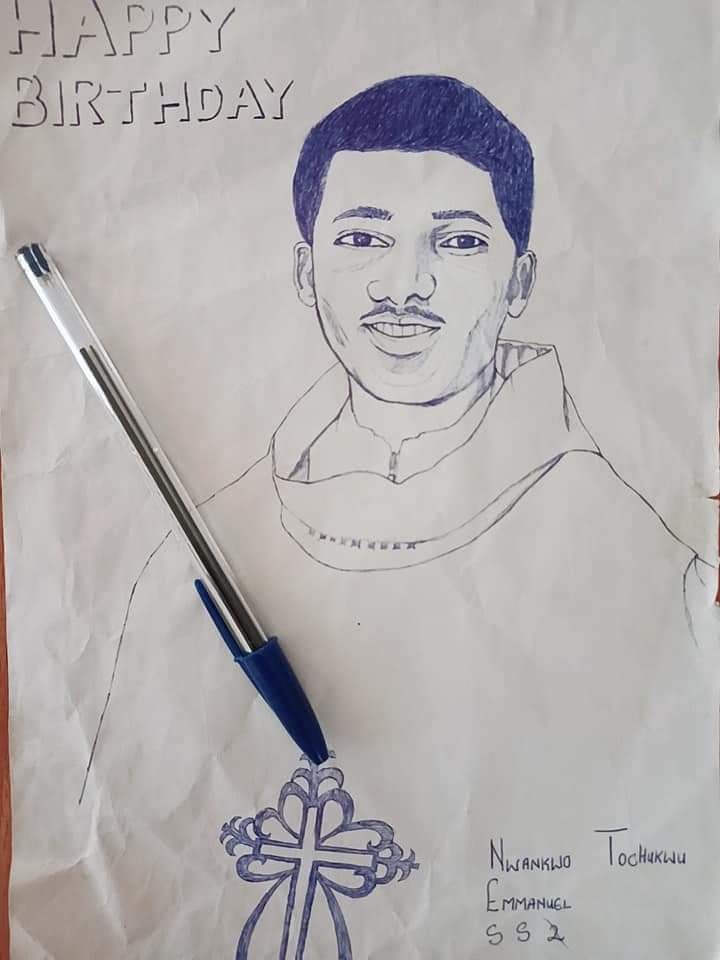 HAPPY
BIRTHDAY
NWANKWO TOCHUKWU
EMMANUEL
SS2